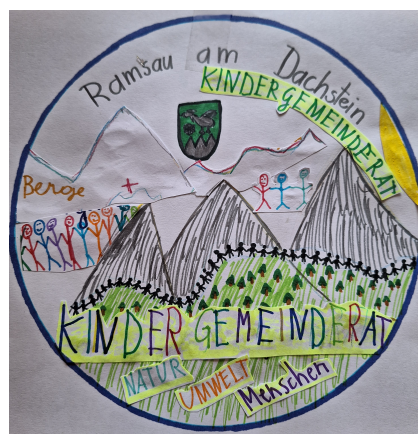 Ramsau am Dachstein
KINDERGEMEINDERAT
Berge
KINDERGEMEINDERAT
NATUR
UMWELT
Menschen